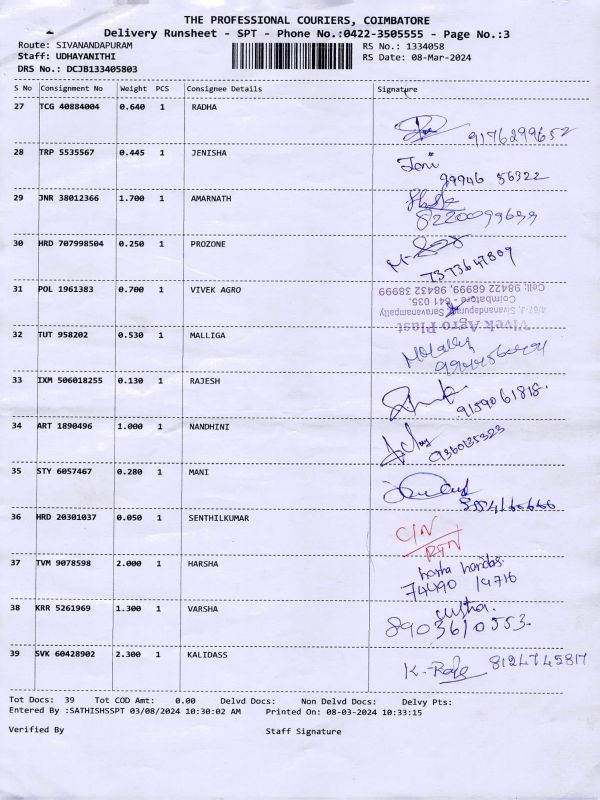 THE PROFESSIONAL COURIERS, COIMBATORE
Delivery Runsheet - SPT - Phone No.:0422-3505555 - Page No.:3
Route: SIVANANDAPURAM RS No.: 1334058
Staff: UDHAYANITHI RS Date: 08-Mar-2024
DRS No.: DCJB133405803
S No Consignment No Weight PCS Consignee Details Signature
27 TCG 40884004 0.640 1 RADHA
9176299652
28 TRP 5535567 0.445 1 JENISHA Jeni
99946 56322
29 JNR 38012366 1.700 1 AMARNATH
8220099699
30 HRD 707998504 0.250 1 PROZONE
7373647809
31 POL 1961383 0.700 1 VIVEK AGRO
Vivek Agro Plast
4/67-J, Sivanandapuram, Saravanampatty
Coimbatore - 641 035.
Cell: 98422 66999, 98432 38999
32 TUT 958202 0.530 1 MALLIGA
33 IXM 506018255 0.130 1 RAJESH
9159061818.
34 ART 1890496 1.000 1 NANDHINI
9360135323
35 STY 6057467 0.280 1 MANI
36 HRD 20301037 0.050 1 SENTHILKUMAR C/N
RTN
37 TVM 9078598 2.000 1 HARSHA
74490 14716
38 KRR 5261969 1.300 1 VARSHA
8903610553.
39 SVK 60428902 2.300 1 KALIDASS 8124745817
Tot Docs: 39 Tot COD Amt: 0.00 Delvd Docs: Non Delvd Docs: Delvy Pts:
Entered By :SATHISHSSPT 03/08/2024 10:30:02 AM Printed On: 08-03-2024 10:33:15
Verified By Staff Signature